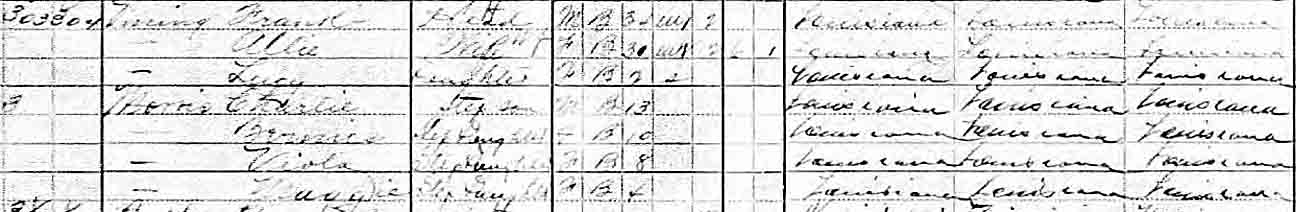 303 304 Frank Head M B M1 2 Louisiana Louisiana Louisiana
— Allie Wife F B 30 M1 2 6 1 Louisiana Louisiana Louisiana
— Lucy Daughter F B 2 S Louisiana Louisiana Louisiana
3 Morris Charlie Step son M B 13 Louisiana Louisiana Louisiana
— Step Daughter F B 10 Louisiana Louisiana Louisiana
— Viola Step Daughter F B 8 Louisiana Louisiana Louisiana
— Maggie Step Daughter F B 4 Louisiana Louisiana Louisiana